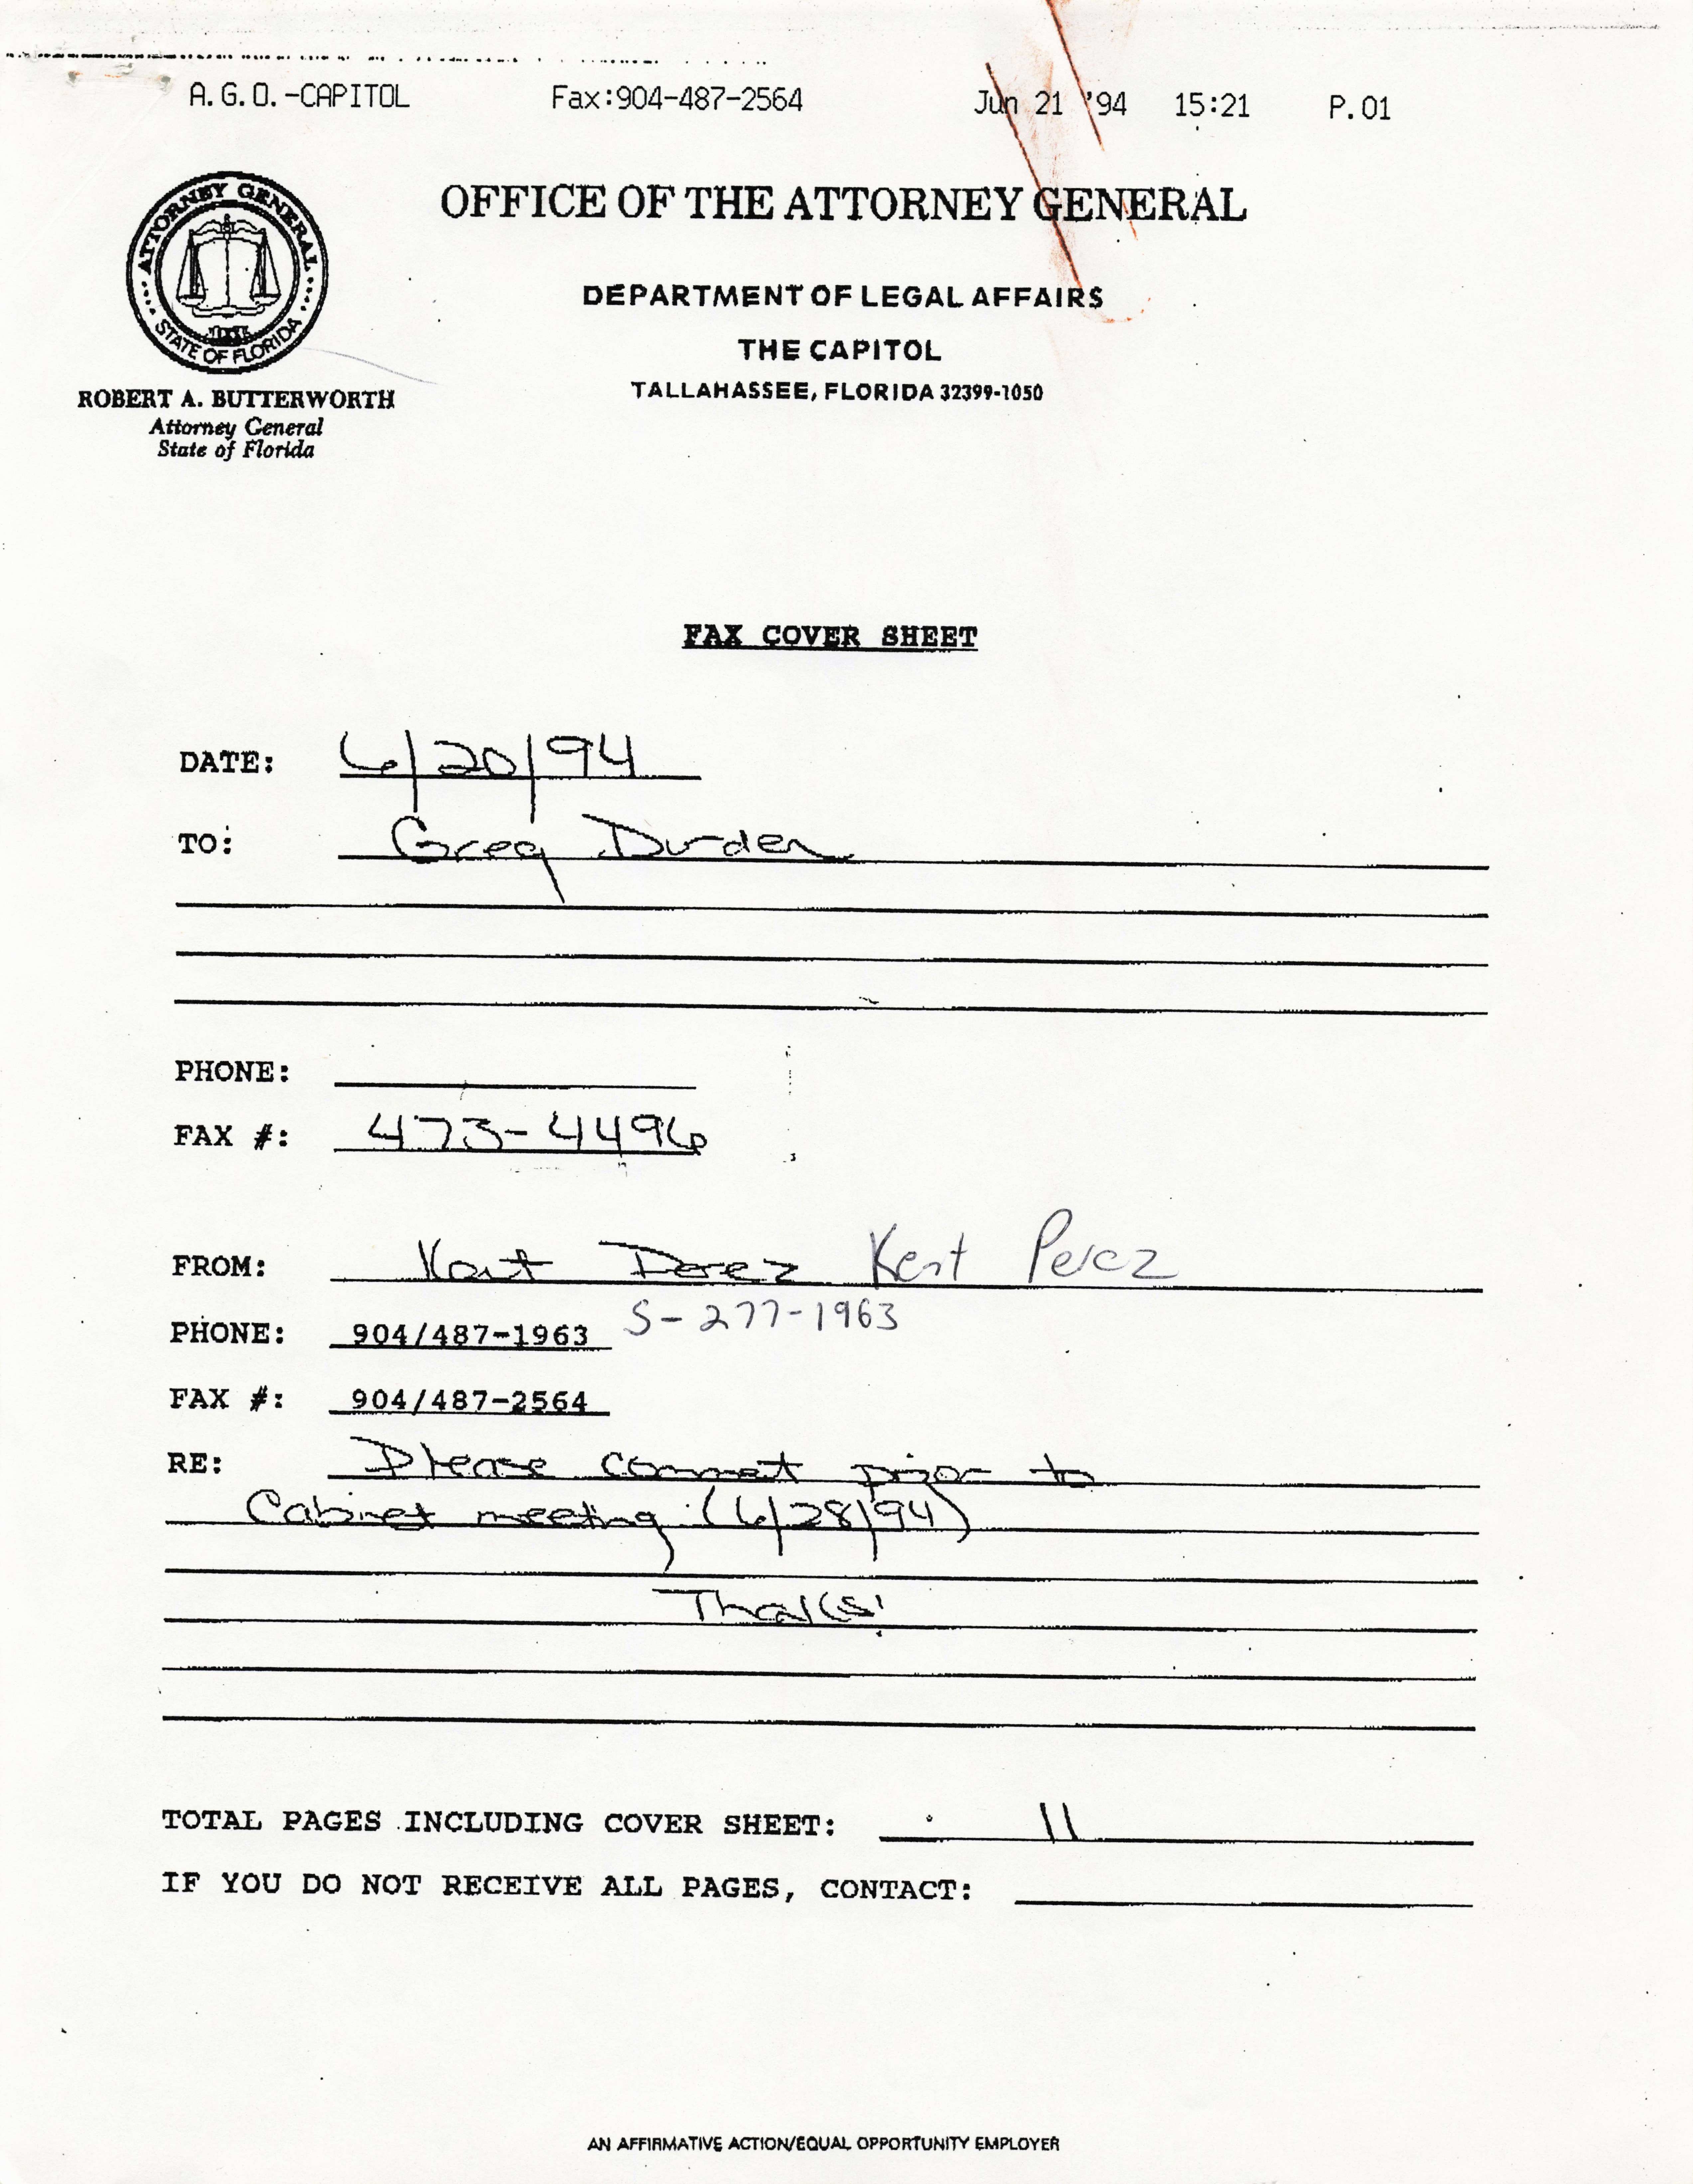 A.G.O.-CAPITOL Fax:904-487-2564 Jun 21 '94 15:21 P.01
ATTORNEY GENERAL
STATE OF FLORIDA
OFFICE OF THE ATTORNEY GENERAL
DEPARTMENT OF LEGAL AFFAIRS
THE CAPITOL
TALLAHASSEE, FLORIDA 32399-1050
ROBERT A. BUTTERWORTH
Attorney General
State of Florida
FAX COVER SHEET
DATE: 6/20/94
TO: Greg Durden
PHONE:
FAX #: 473-4496
FROM: Kent Perez Kent Perez
PHONE: 904/487-1963 S-277-1963
FAX #: 904/487-2564
RE: Please comment prior to
Cabinet meeting (6/28/94)
Thanks!
TOTAL PAGES INCLUDING COVER SHEET: 11
IF YOU DO NOT RECEIVE ALL PAGES, CONTACT:
AN AFFIRMATIVE ACTION/EQUAL OPPORTUNITY EMPLOYER